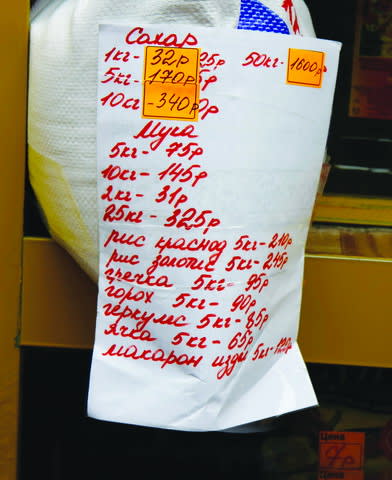 Сахар
1кг- 32р 25р 50кг- 1600р
5кг- 170р
10кг -340р
Мука
5кг- 75р
10кг- 145р
2кг- 31р
25кг- 325р
рис краснод 5кг-210р
рис золотис 5кг-245р
гречка 5кг- 95р
горох 5кг- 90р
геркулес 5кг-85р
ячка 5кг- 65р
макарон издел 5кг-120р
Цена
9р
Цена